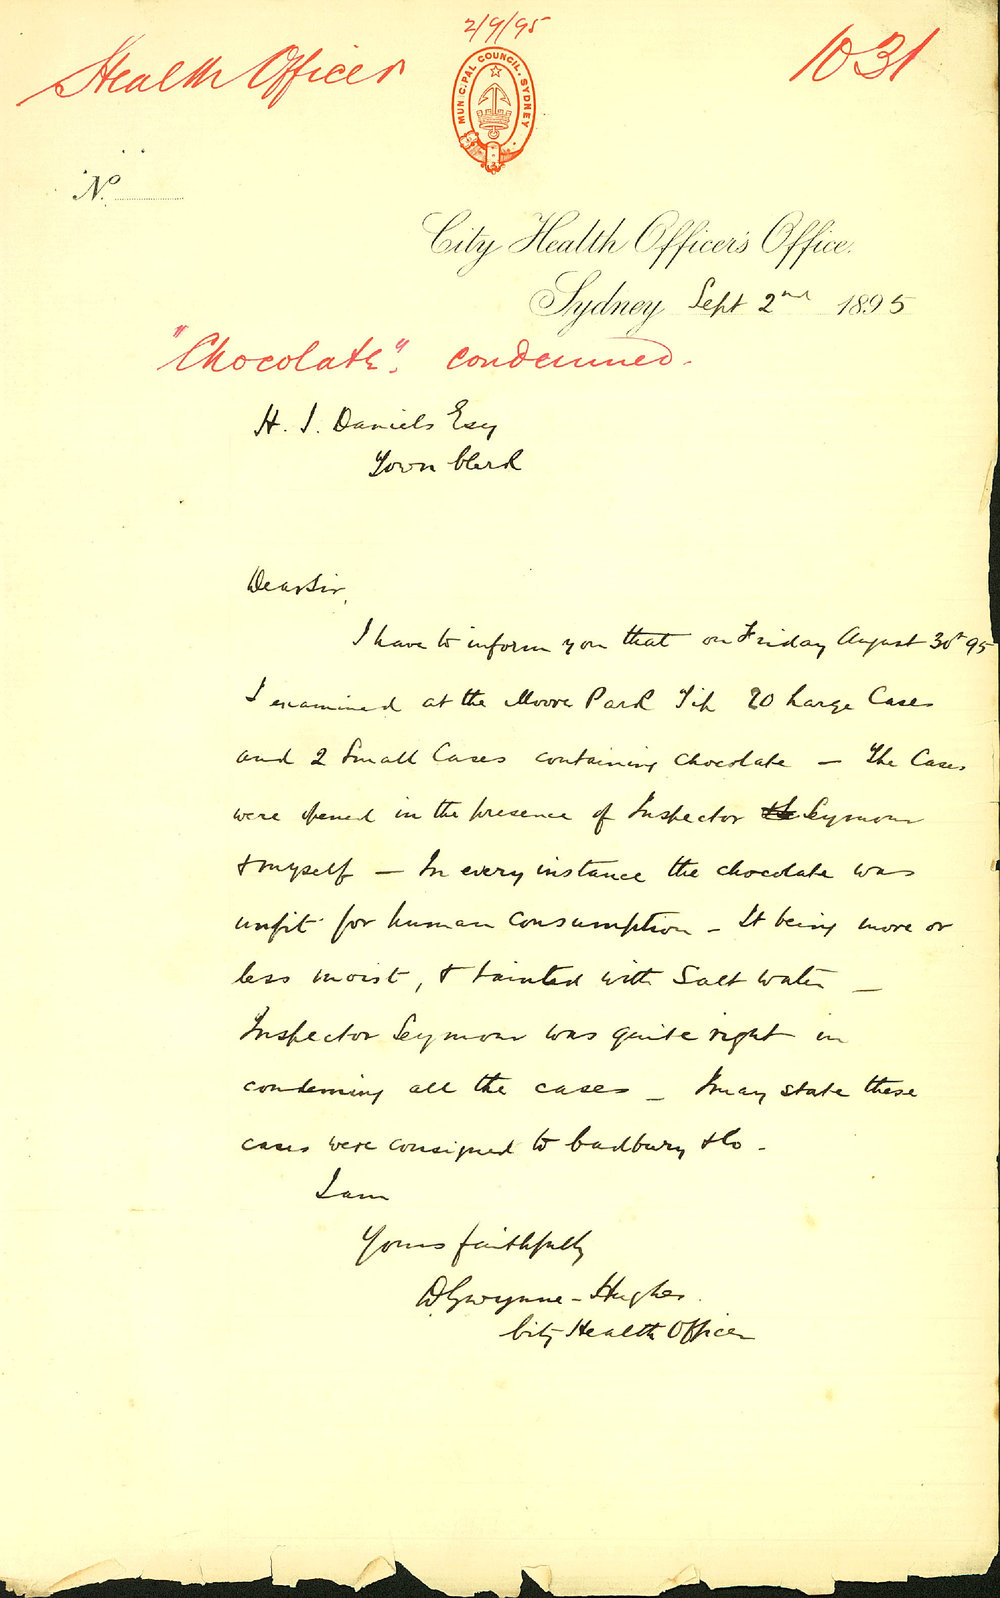 2/9/95
Health Officer
1031
MUNICIPAL COUNCIL. SYDNEY
No.
City Health Officer's Office.
Sydney Sept 2nd 1895
"Chocolate". condemned.
H. J. Daniels Esq
Town Clerk
Dear Sir,
I have to inform you that on Friday August 30th 95
I examined at the Moore Park Tip 20 Large Cases
and 2 Small Cases containing chocolate — The Cases
were opened in the presence of Inspector Seymour
& myself — In every instance the chocolate was
unfit for human consumption — It being more or
less moist, & tainted with Salt water —
Inspector Seymour was quite right in
condeming all the cases — I may state these
cases were consigned to Cadbury & Co.
I am
Yours faithfully
D Gwynne-Hughes.
City Health Officer